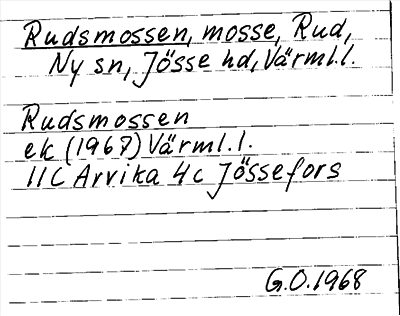 Rudsmossen, mosse, Rud,
Ny sn, Jösse hd, Värml.l.
Rudsmossen
ek (1967) Värml.l.
11C Arvika 4c Jössefors
G.O.1968